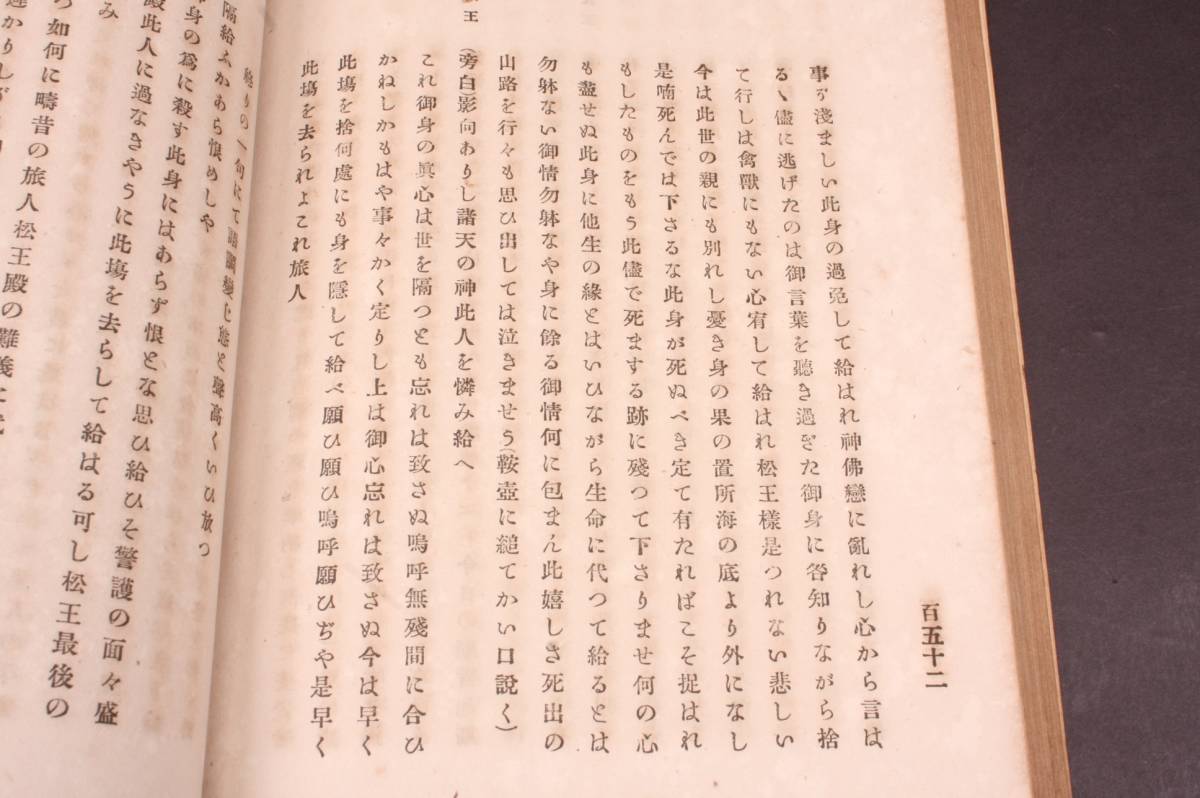 百五十二
事が淺ましい此身の過免して給はれ神佛戀に亂れし心から言は
るゝ儘に逃げたのは御言葉を聽き過ぎた御身に咎知りながら捨
て行しは禽獸にもない心宥して給はれ松王樣是つれない悲しい
今は此世の親にも別れし憂き身の果の置所海の底より外になし
是喃死んでは下さるな此身が死ぬべき定て有たればこそ捉はれ
もしたものをもう此儘で死まする跡に殘つて下さりませ何の心
も盡せぬ此身に他生の緣とはいひながら生命に代つて給るとは
勿躰ない御情勿躰なや身に餘る御情何に包まん此嬉しさ死出の
山路を行々も思ひ出しては泣きませう(鞍壺に縋てかい口說く)
王
(旁白)影向ありし諸天の神此人を憐み給へ
これ御身の眞心は世を隔つとも忘れは致さぬ嗚呼無殘間に合ひ
かねしかもはや事々かく定りし上は御心忘れは致さぬ今は早く
此塲を捨何處にも身を隱して給べ願ひ願ひ嗚呼願ひぢや是早く
此塲を去られよこれ旅人
りの一句にて語調變じ態と聲高くいひ放つ
隔給ふかあら恨めしや
身の爲に殺す此身にはあらず恨とな思ひ給ひそ警護の面々盛
殿此人に過なきやうに此塲を去らして給はる可し松王最後の
み
如何に疇昔の旅人松王殿の難義に